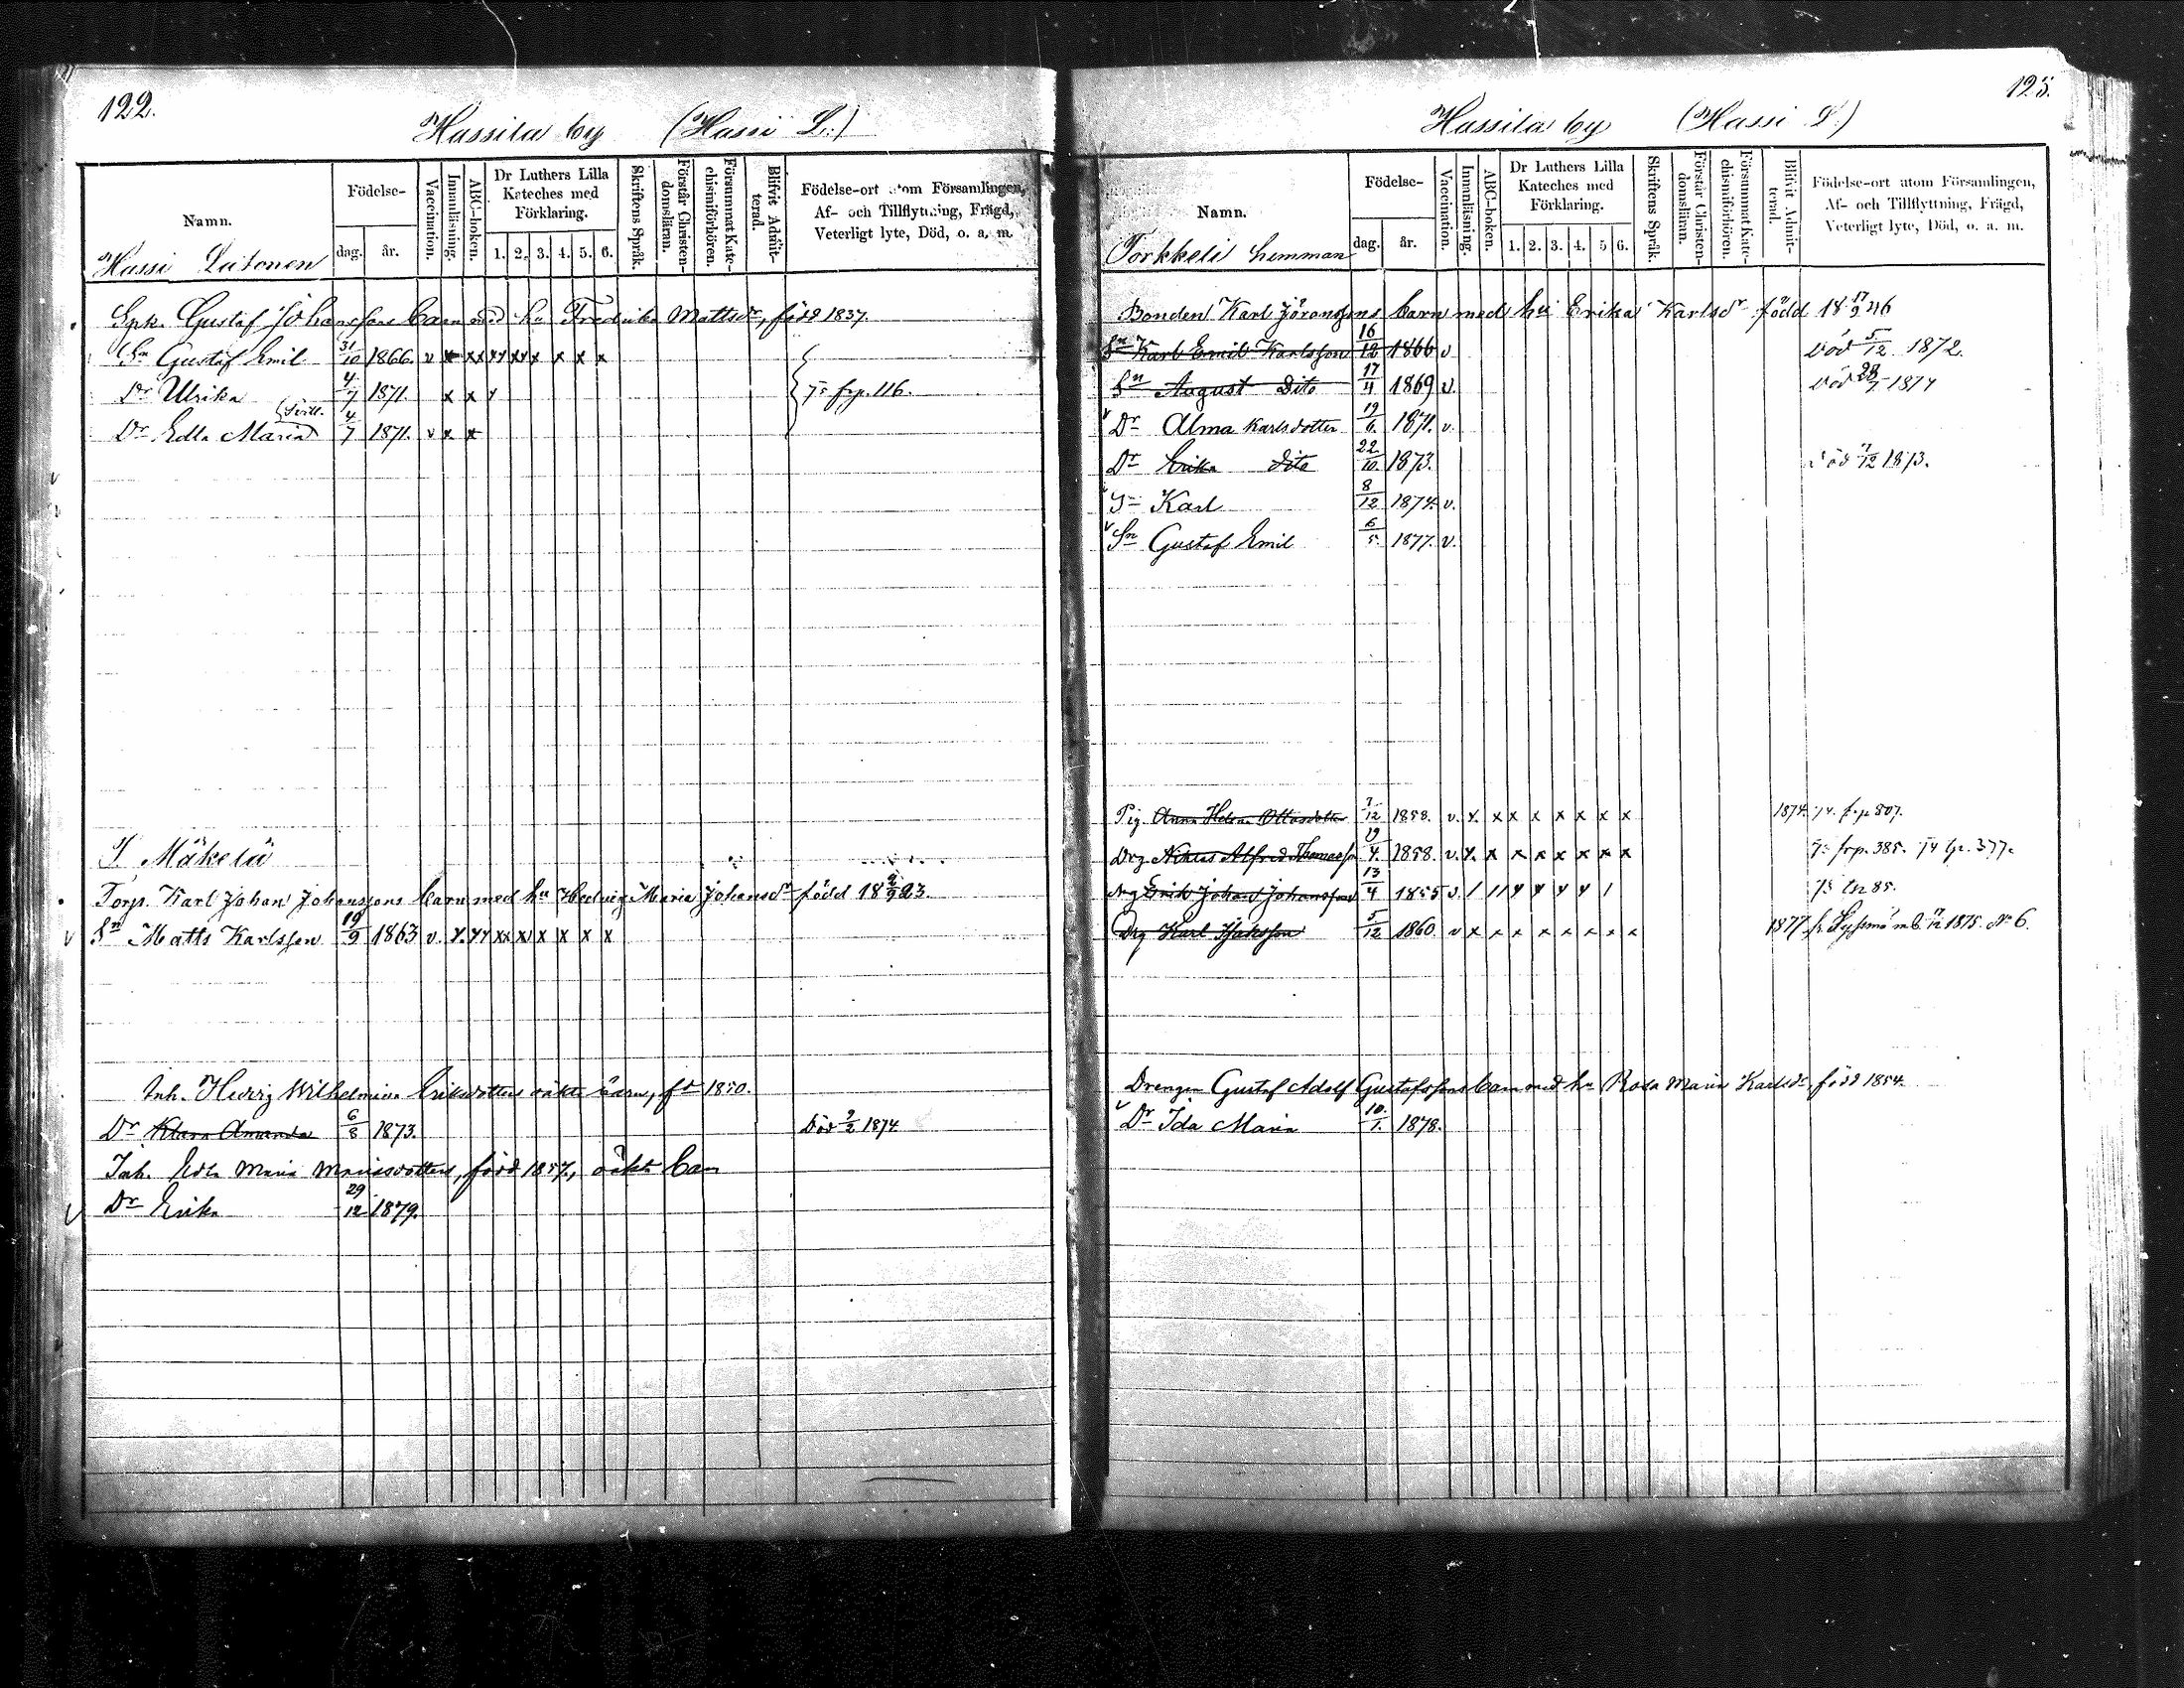 122.
Hassila by (Hassi L.)
Namn.
Födelse-
dag. år.
Vaccination.
Innanläsning.
ABC-boken.
Dr Luthers Lilla Kateches med Förklaring.
1. 2. 3. 4. 5. 6.
Skriftens Språk.
Förstår Christendomsläran.
Försummat Katechismiförhören.
Blifvit Admitterad.
Födelse-ort utom Församlingen,
Af- och Tillflyttning, Frägd,
Veterligt lyte, Död, o. a. m.
Hassi
Gustaf Johanssons barn med hu Fredrika Mattsdr, född 1837.
Sn Gustaf Emil 31/10 1866. v x xx xx xx x x x x
Dr Ulrika 4/7 1871. x x frp. 116.
Dr Edla Maria 4/7 1871. v x x
Mäkelä
Torp. Karl Johan Johanssons barn med hu Hedvig Maria Johansdr född 1823.
Sn Matts Karlsson 19/9 1863 v. x. xx xx x x x x x
Inh. Hedvig Wilhelmina Eriksdotters oäkta barn, fd 1850.
Dr Klara Amanda 6/8 1873. Död 9/2 1874
Inh. Edla Maria Mariasdotters, född 1857, oäkta barn
Dr Erika 29/12 1879.
125.
Hassila by (Hassi L.)
Namn.
Födelse-
dag. år.
Vaccination.
Innanläsning.
ABC-boken.
Dr Luthers Lilla Kateches med Förklaring.
1. 2. 3. 4. 5 6.
Skriftens Språk.
Förstår Christendomsläran.
Försummat Katechismiförhören.
Blivit Admitterad.
Födelse-ort utom Församlingen,
Af- och Tillflyttning, Frägd,
Veterligt lyte, Död, o. a. m.
Torkkeli hemman
Bonden Karl Göranssons barn med hu Erika Karlsdr född 18 17/9 46
Sn Karl Emil Karlsson 16/12 1866 v Död 5/12 1872.
Sn August Dito 17/4 1869 v. Död 28/7 1874
Dr Alma Karlsdotter 19/6. 1871. v.
Dr Erika dito 22/10 1873. död 7/12 1873.
Sn Karl 8/12 1874. v.
Sn Gustaf Emil 6/5. 1877. v.
Pig. Anna Helena Ottosdotter 7/12 1858. v. x. x x x x x x x 1874. 74. frp 807.
Drg Niklas Alfred Thomasson 19/4. 1858. v. x. x x x x x x x frp. 385.
Drg Erik Johan Johansson 13/4 1855
Drg Karl 5/12 1860. v x x x x x x x x 1877. 1875. No 6.
Drengen Gustaf Adolf Gustafssons barn med hu Rosa Maria Karlsdr, född 1854.
Dr Ida Maria 10./1. 1878.